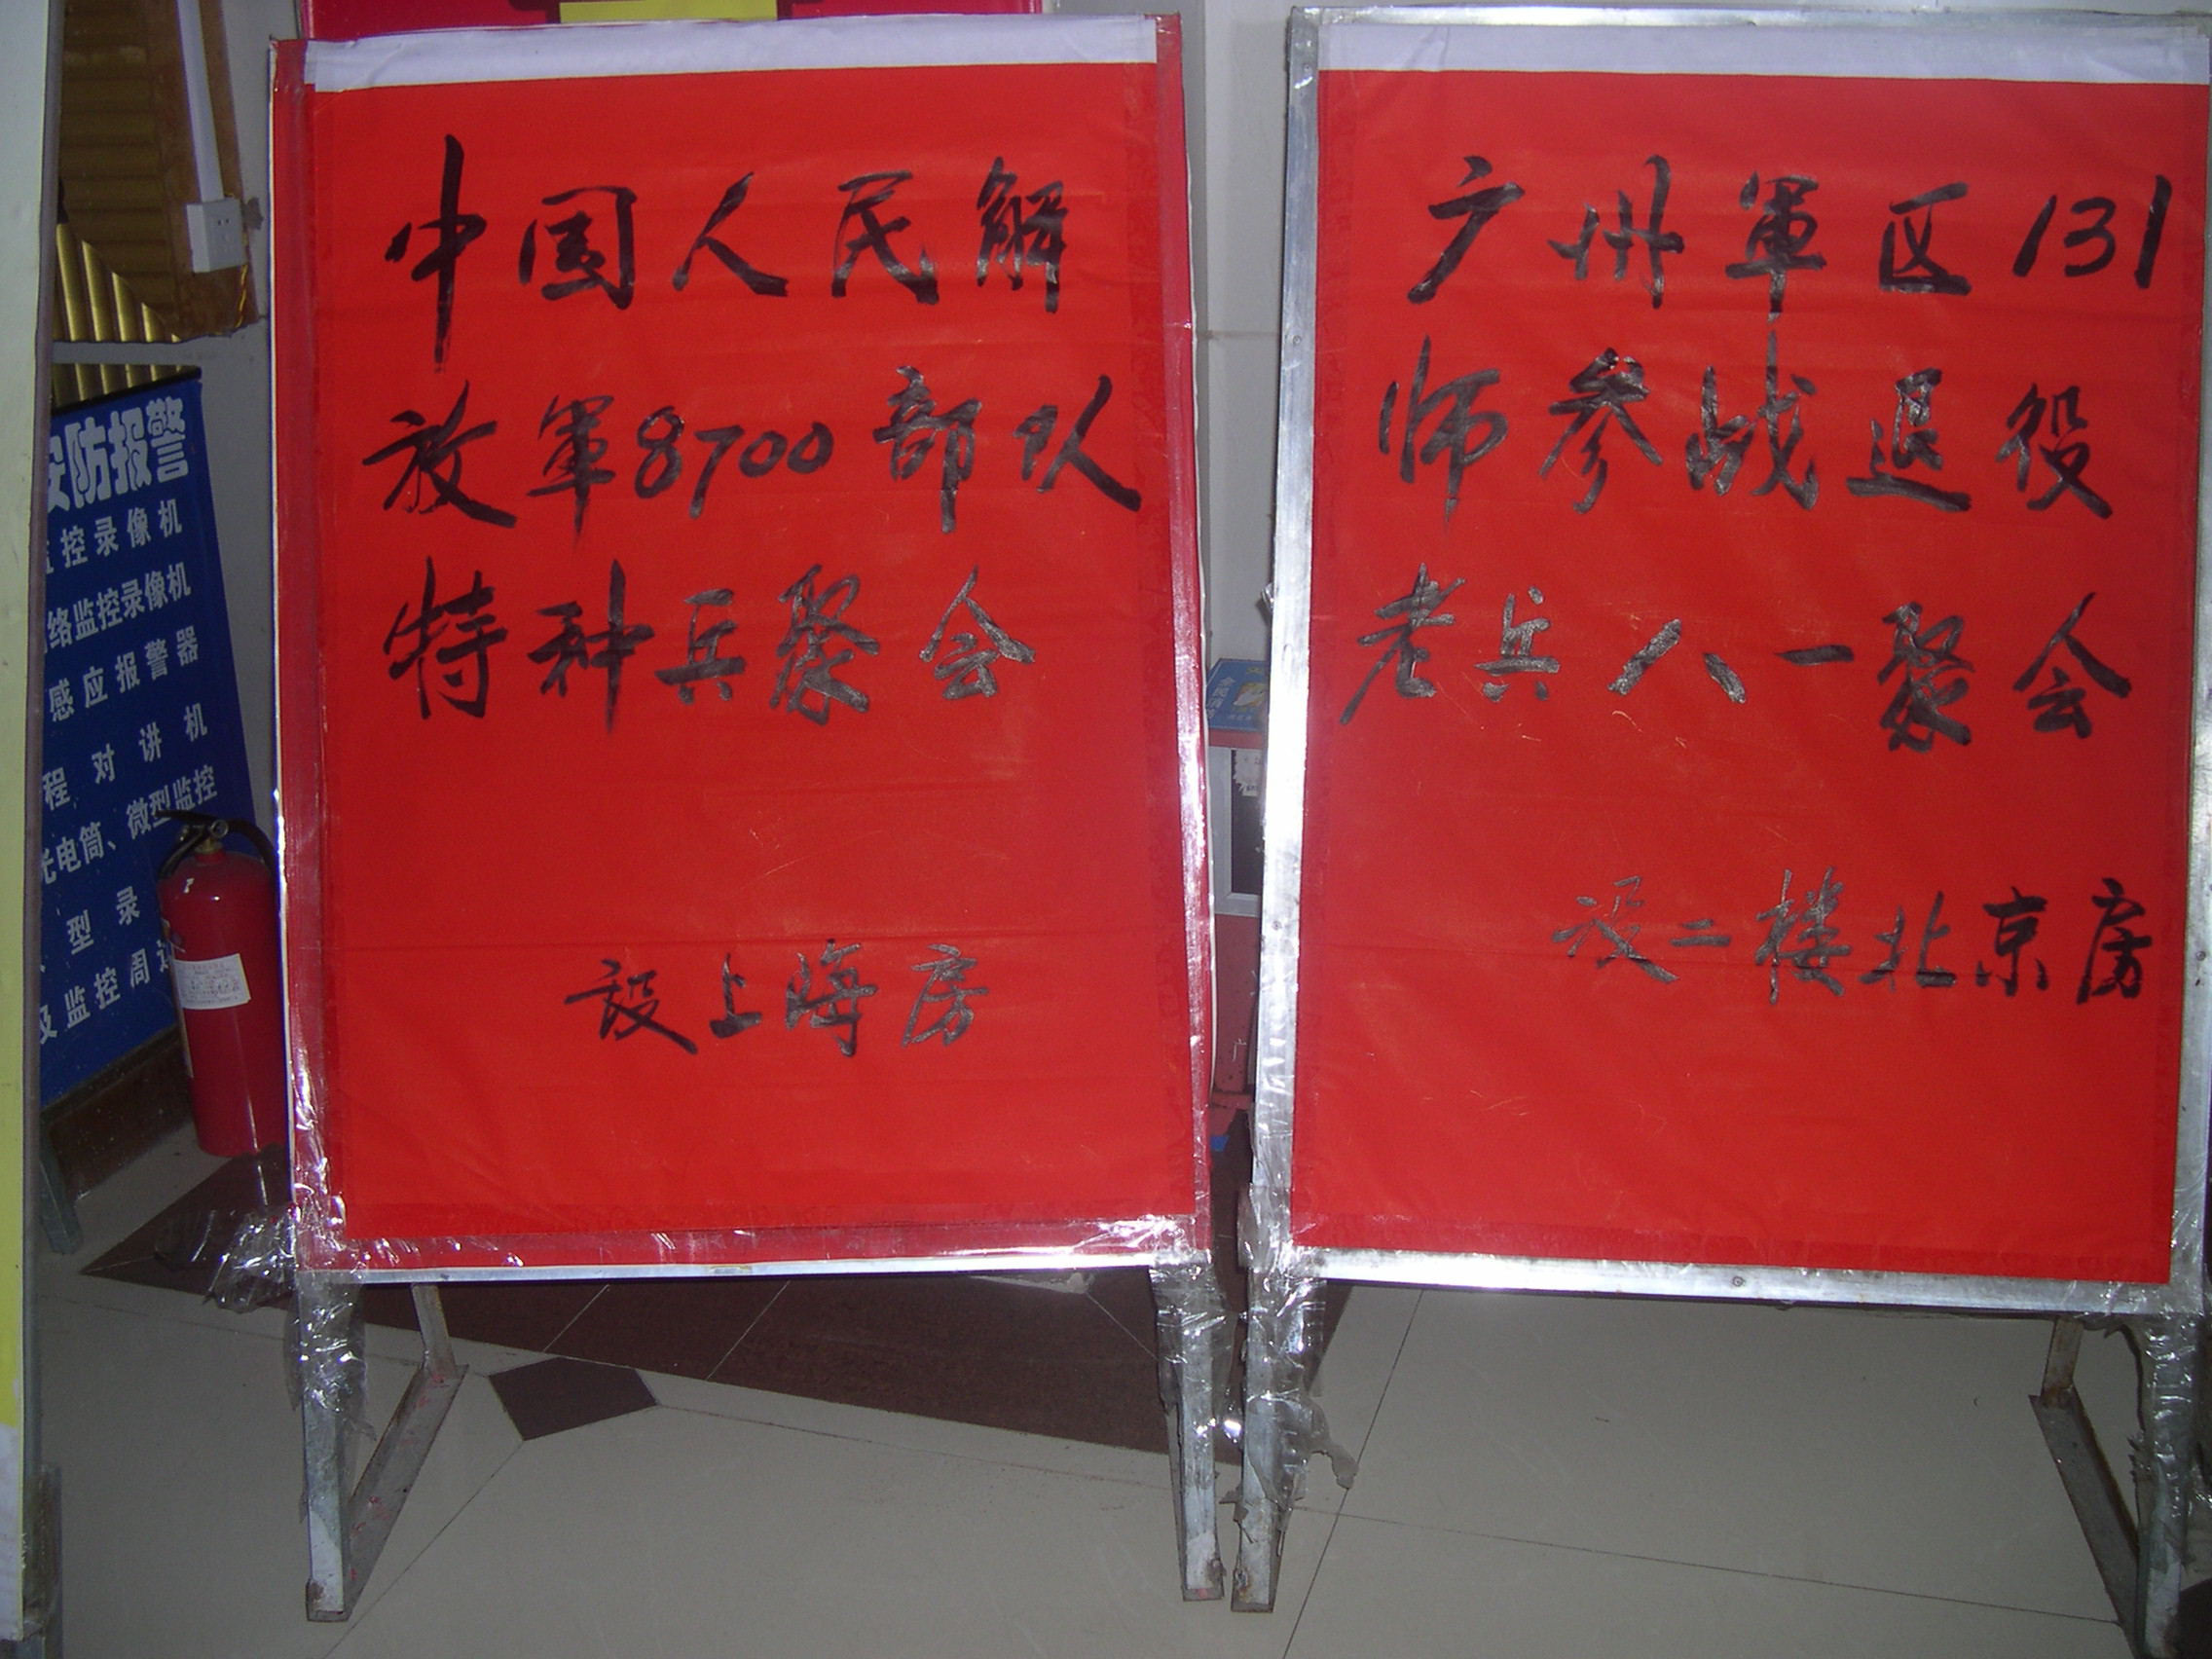 中国人民解
放軍8700部队
特种兵聚会
設上海房
广州軍区131
师参战退役
老兵八一聚会
设二楼北京房
安防报警
监控录像机
络监控录像机
感应报警器
程对讲机
光电筒、微型监控
型录
及监控周边